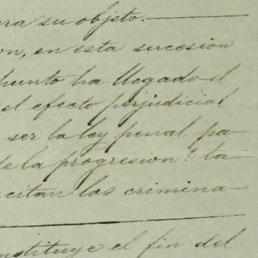 ra su objeto.
on, en esta sucesion
punto ha llegado el
el efecto perjudicial
ser la ley penal pa-
de la progresion? ta
citan las crimina-
nstituye el fin del